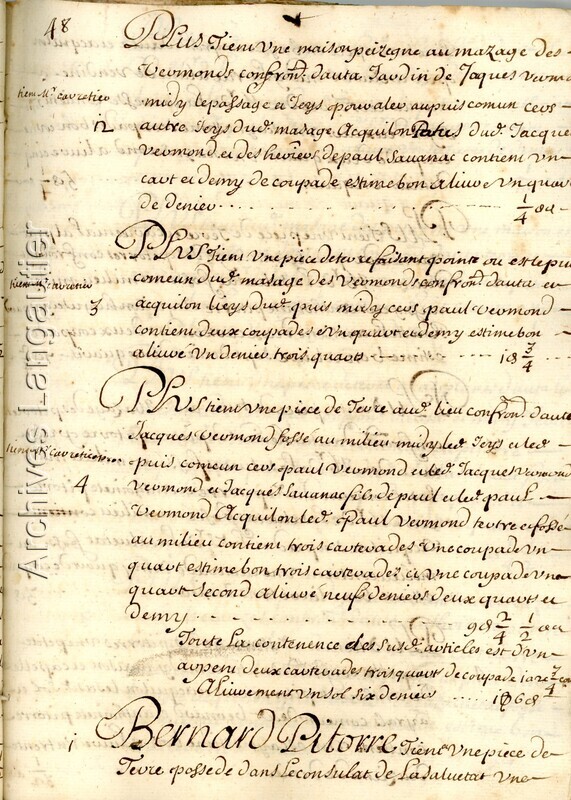 48
PLUS Tient Une maison peizegne au mazage des
Vermonds confron.t d'auta Jardin de Jaques Verm
tient M.r Cavretier
midy le passage et Ieys pour aler au puis comun cers
2
autre Ieys dud. masage Acquilon Patus dud. Jacque
Vermond et des heriers de paul Sauanac contient un
cart et demy de coupade estime bon aliure Un quar
de denier . . . . 1/4 d
PLUS Tient Une pièce de terre faisant pointe ou est le pui
comeun dud. masage des Vermonds confron.t d'auta et
3
acquilon lieys dud. puis midy cers paul Vermond
contient deux coupades et Un quart et demy estime bon
aliuré Un denier trois quarts . . . . 1 d 3/4
PLUS tient Une pièce de Terre aud. lieu confron.t d'auta
Jacques Vermond fossé au milieu midy led. Ieys et led.
puis comeun cers paul Vermond et led. Jacques Vermond
4
Vermond et Jacques Sauanac fils de paul et led. paul
Vermond Acquilon led. Paul Vermond fossé
au milieu contient trois cartevades Une coupade Un
quart estime bon trois cartevades et Une coupade Une
quart Second aliuré neuf deniers deux quarts et
demy . . . . 9 d 2/4 1/2
Toute La contenence des Susd. articles est d'Un
arpent deux cartevades trois quarts de coupade 3/4
Aliurement Un sol six deniers . . . . 1 6 d
1
Bernard Pitorre Tient Une pièce de
Terre possede dans Le consulat de La Saluetat Une
Archives Langautier